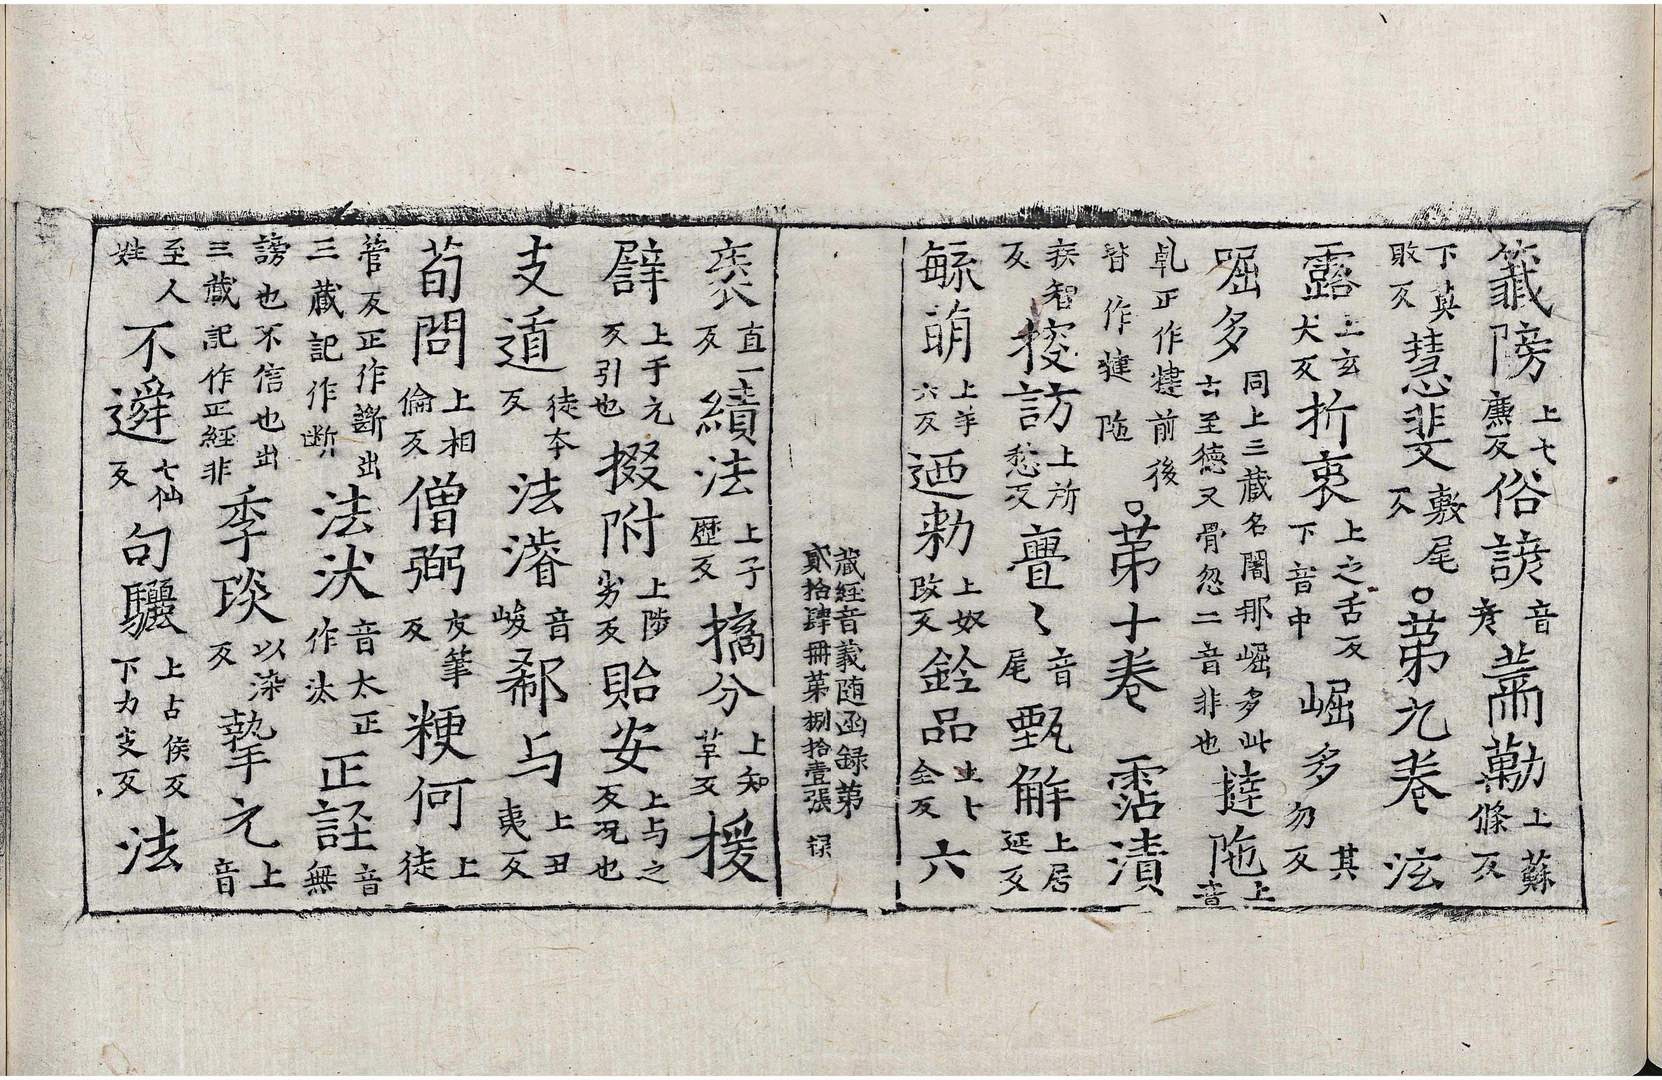 籖牓上七廉反俗諺音彦蕭勱上蘇條反
下莫敗反慧斐敷尾反○第九卷泫
露上玄犬反折衷上之舌反下音中崛多其勿反
崛多同上三藏名闍那崛多此古至德又骨忽二音非也揵陁上音
乹正作揵前後昔作揵陁○第十卷霑漬
疾智反搜訪上所愁反亹〻音尾甄解上居延反
緜萌上羊六反迺勑上奴改反銓品上七全反六
藏經音義随函録第貳拾肆冊第捌拾壹張
袠直一反績法上子歷反擿分上知革反援
譬上手元反引也掇附上陟劣反貽安上与之反况也
支遁徒夲反法濬音峻郗与上丑夷反
荀問上相倫反僧弼皮筆反粳何上徒
管反正作斷出三藏記作断法汱音太正作汰正誣音無
謗也不信也出三藏記作正經非季琰以染反摰元上音
至人姓不遴七仙反句驪上古侯反下力支反法